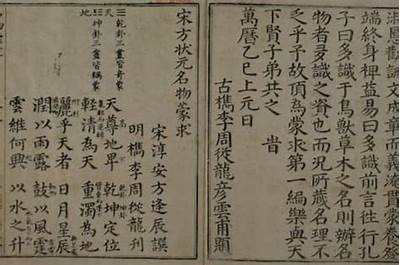 誦文成章而義淹貫蒙養發
端終身裨益易曰多識前言往行孔
子曰多識于鳥獸草木之名則辦名
物者多識之資也而況所載名理不
乏乎予故頂為蒙求第一編樂與天
下賢子弟共之 旹
萬曆乙巳上元日
古檇李周從龍彥雲甫題
宋方狀元名物蒙求
宋淳安方逢辰譔
明檇李周從龍刊
天尊地卑 乾坤定位
輕清為天 重濁為地
麗乎天者 日月星辰
潤以雨露 鼓以風霆
雲維何興 以水之升
☰乾卦三畫皆奇象天
☷坤卦三畫皆耦象地